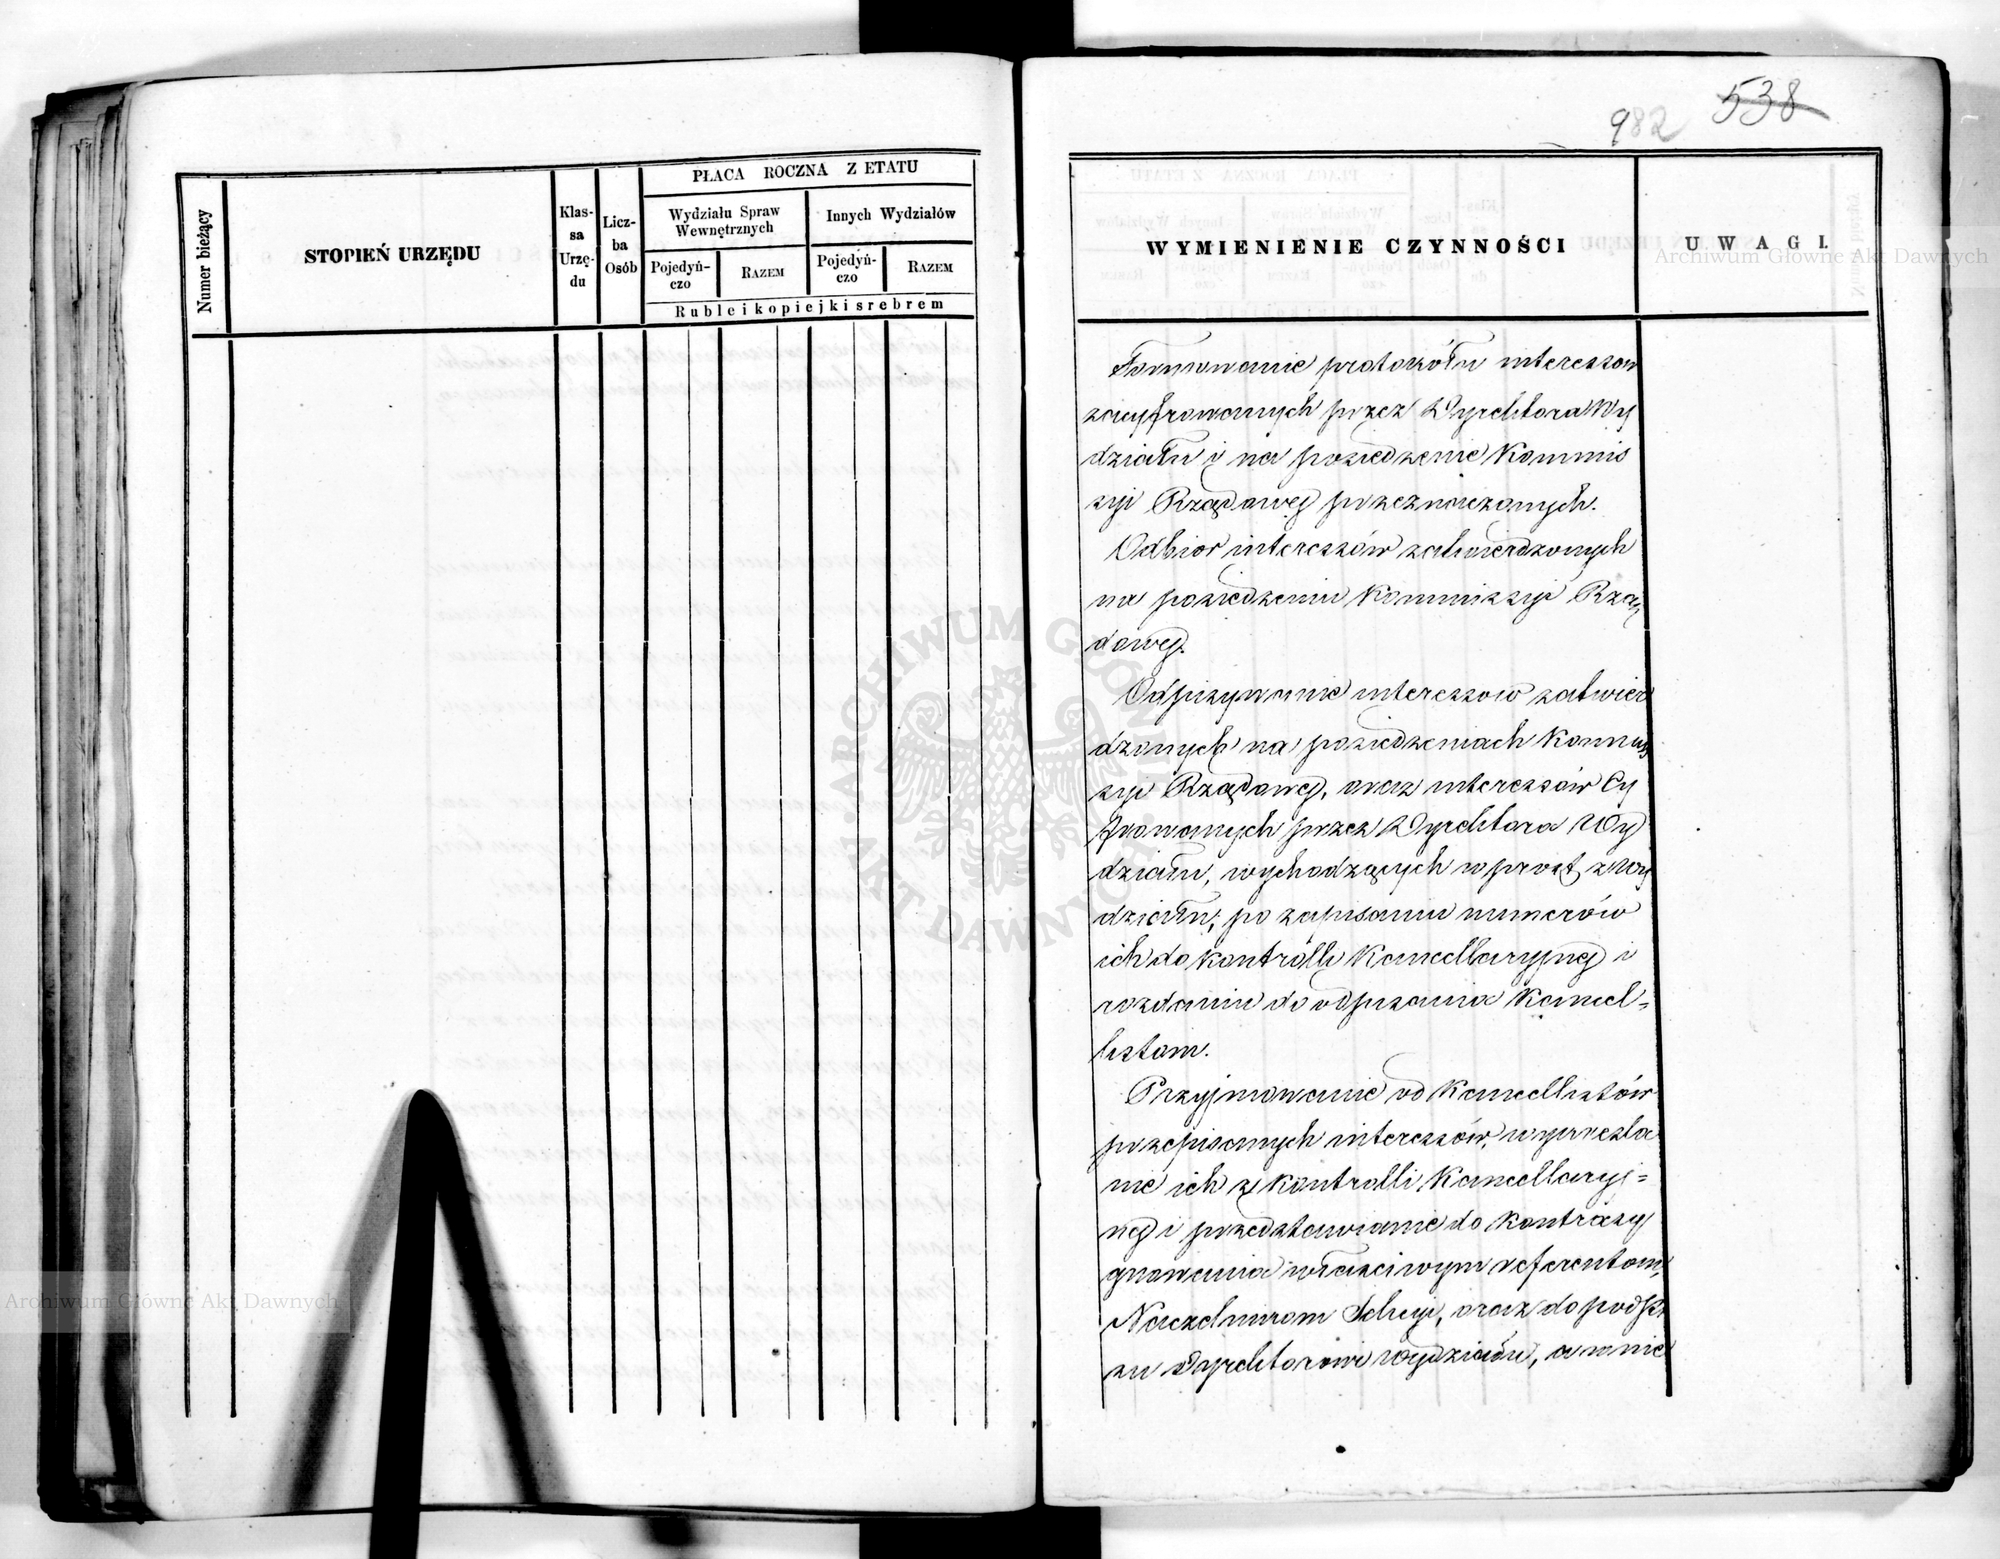 Numer bieżący
STOPIEŃ URZĘDU
Klas-
sa
Urzę-
du
Licz-
ba
Osób
PŁACA ROCZNA Z ETATU
Wydziału Spraw
Wewnętrznych
Innych Wydziałów
Pojedyń-
czo
RAZEM
Pojedyń-
czo
RAZEM
Ruble i kopiejki srebrem
982 538
WYMIENIENIE CZYNNOŚCI
UWAGI.
Formowanie protokółu interessow
zacyfrowanych przez Dyrektora Wy
działu i na posiedzenie Kommis
syi Rządowej przeznaczonych.
Odbior interessów zatwierdzonych
na posiedzeniu Kommissyi Rzą
dowej.
Odpisywanie interessow zatwier
dzonych na posiedzeniach Kommis
syi Rządowej, oraz interessów Cy
frowanych przez Dyrektora Wy
działu, wychodzących wprost z Wy
działu, po zapisaniu numerów
ich do kontrolli Kancellaryjnej i
rozdaniu do odpisania Kancel-
listom.
Przyjmowanie od Kancellistów
przepisanych interessów, wykreśla
nie ich z kontrolli Kancellaryj-
nej i przedstawianie do Kontrasy
gnowania właściwym referentom,
Naczelnikom Sekcyi, oraz do podpi
su Dyrektorowi Wydziału, a
ARCHIWUM GŁÓWNE AKT DAWNYCH
Archiwum Główne Akt Dawnych
Archiwum Główne Akt Dawnych